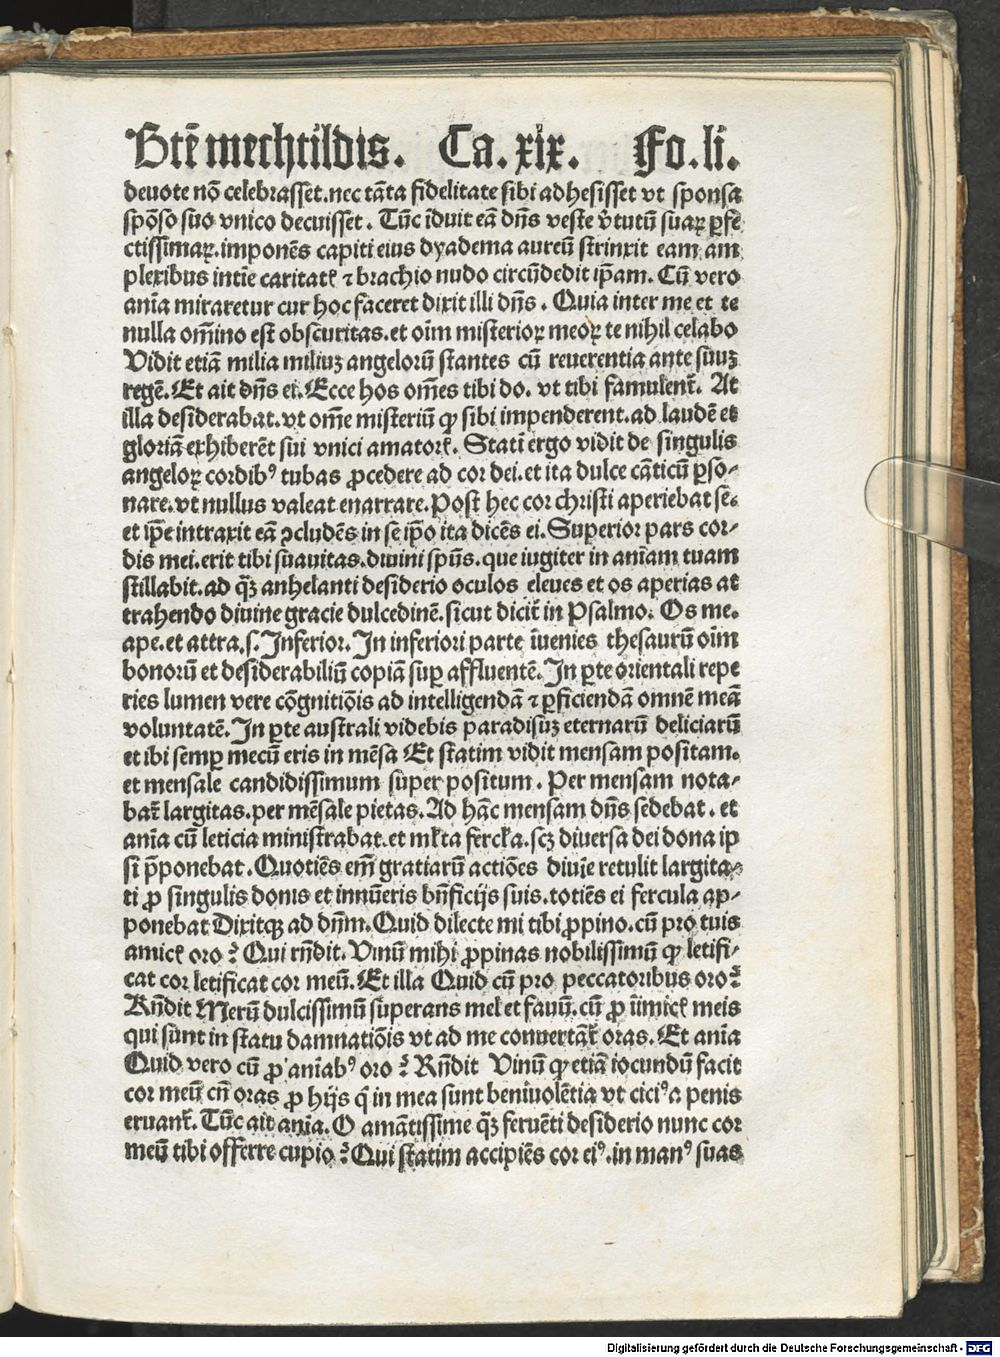 Btē mechtildis. Ca. xix. Fo. li.
deuote nō celebrasset. nec tāta fidelitate sibi adhesisset vt sponsa
spōso suo vnico decuisset. Tūc īduit eā dn̄s veste v̓tutū suaꝝ ꝑfe
ctissimaꝝ. imponēs capiti eius dyadema aureū strinxit eam am
plexibus intīe caritatꝭ ⁊ brachio nudo circūdedit ip̄am. Cū vero
anīa miraretur cur hoc faceret dixit illi dn̄s. Quia inter me et te
nulla om̄ino est obscuritas. et oīm misterioꝝ meoꝝ te nihil celabo
Vidit etiā milia miliuꝫ angelorū stantes cū reuerentia ante suuꝫ
regē. Et ait dn̄s ei. Ecce hos om̄es tibi do. vt tibi famulent᷑. At
illa desiderabat. vt om̄e misteriū ꝙ sibi impenderent. ad laudē et
gloriā exhiberēt sui vnici amatorꝭ. Statī ergo vidit de singulis
angeloꝝ cordibꝰ tubas ꝓcedere ad cor dei. et ita dulce cāticū ꝑso-
nare. vt nullus valeat enarrare. Post hec cor christi aperiebat se.
et ip̄e intraxit eā ꝯcludēs in se ip̄o ita dicēs ei. Superior pars cor-
dis mei. erit tibi suauitas. diuini spūs. que iugiter in anīam tuam
stillabit. ad q̄ꝫ anhelanti desiderio oculos eleues et os aperias at
trahendo diuine gracie dulcedinē. sicut dicit᷑ in Psalmo. Os me.
ape. et attra. s. Inferior. In inferiori parte īuenies thesaurū oīm
bonorū et desiderabiliū copiā suꝑ affluentē. In ꝑte orientali repe
ries lumen vere cōgnitiōis ad intelligendā ⁊ ꝑficiendā omnē meā
voluntatē. In ꝑte australi videbis paradisuꝫ eternarū deliciarū
et ibi semꝑ mecū eris in mēsa Et statim vidit mensam positam.
et mensale candidissimum super positum. Per mensam nota-
bat᷑ largitas. per mēsale pietas. Ad hāc mensam dn̄s sedebat. et
anīa cū leticia ministrabat. et ml̄ta fercl̄a. scꝫ diuersa dei dona ip
si p̄ponebat. Quotiēs em̄ gratiarū actiōes diuīe retulit largita-
ti ꝓ singulis donis et innūeris bn̄ficijs suis. totiēs ei fercula ap-
ponebat Dixitqꝫ ad dn̄m. Quid dilecte mi tibi ꝓpino. cū pro tuis
amicꝭ oro? Qui rn̄dit. Vinū mihi ꝓpinas nobilissimū ꝙ letifi-
cat cor letificat cor meū. Et illa Quid cū pro peccatoribus oro?
Rn̄dit Merū dulcissimū superans mel et fauū. cū ꝓ īimicꝭ meis
qui sunt in statu damnatiōis vt ad me conuertāt᷑ oras. Et anīa
Quid vero cū ꝓ anīabꝰ oro? Rn̄dit Vinū ꝙ etiā iocundū facit
cor meū cū oras ꝓ hijs q̄ in mea sunt beniuolētia vt ciciꝰ a penis
eruant᷑. Tūc ait anīa. O amātissime q̄ꝫ feruēti desiderio nunc cor
meū tibi offerre cupio? Qui statim accipiēs cor eiꝰ. in manꝰ suas
Digitalisierung gefördert durch die Deutsche Forschungsgemeinschaft - DFG